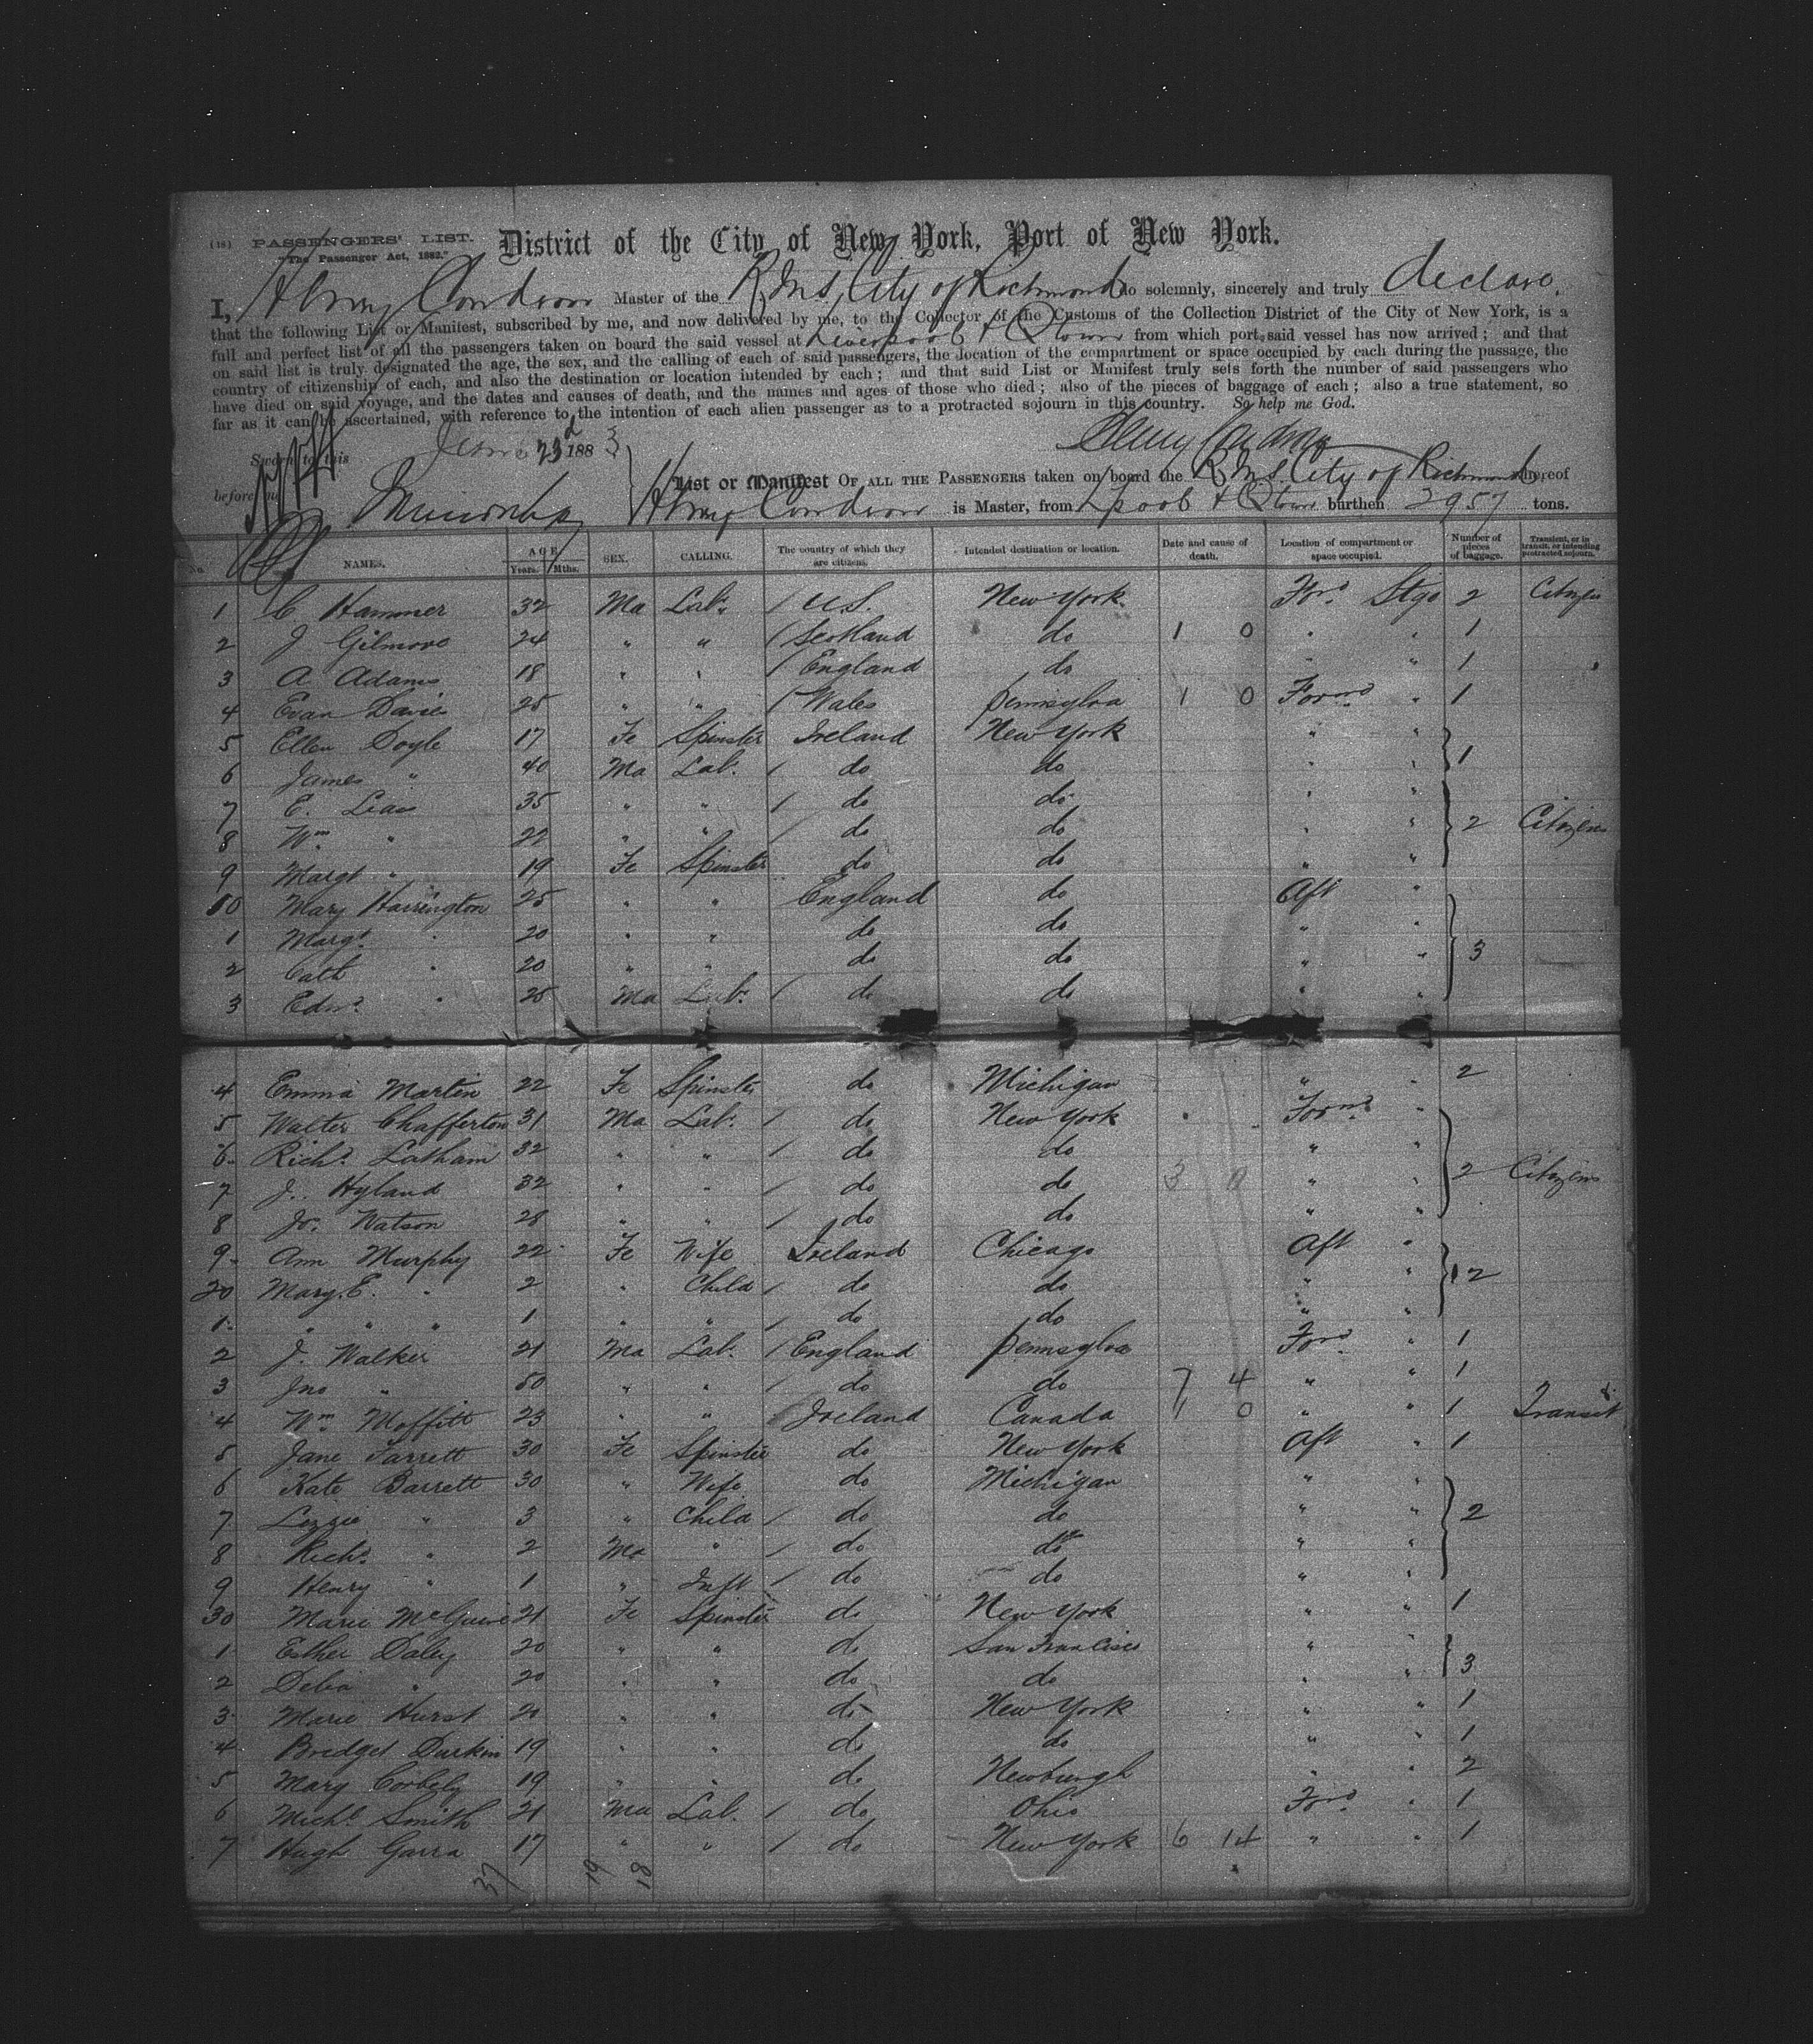 (18) PASSENGERS' LIST. District of the City of New York, Port of New York.
"The Passenger Act, 1882."
I, Henry Condron Master of the R.M.S. City of Richmond do solemnly, sincerely and truly declare,
that the following List or Manifest, subscribed by me, and now delivered by me, to the Collector of the Customs of the Collection District of the City of New York, is a
full and perfect list of all the passengers taken on board the said vessel at Liverpool & Qtown from which port said vessel has now arrived; and that
on said list is truly designated the age, the sex, and the calling of each of said passengers, the location of the compartment or space occupied by each during the passage, the
country of citizenship of each, and also the destination or location intended by each; and that said List or Manifest truly sets forth the number of said passengers who
have died on said voyage, and the dates and causes of death, and the names and ages of those who died; also of the pieces of baggage of each; also a true statement, so
far as it can be ascertained, with reference to the intention of each alien passenger as to a protracted sojourn in this country. So help me God.
Sworn to this June 23d 1883 Henry Condron
before me List or Manifest OF ALL THE PASSENGERS taken on board the R.M.S. City of Richmond whereof
Henry Condron is Master, from Lpool & Qtown burthen 2957 tons.
No. NAMES. AGE Years. Mths. SEX. CALLING. The country of which they are citizens. Intended destination or location. Date and cause of death. Location of compartment or space occupied. Number of pieces of baggage. Transient, or in transit, or intending protracted sojourn.
1 C Hammer 32 Ma Lab. / U.S. New York Ford Stge 2 Citizen
2 J Gilmore 24 " " / Scotland do 1 0 " " 1
3 A Adams 18 " " / England do " " 1
4 Evan Davies 25 " " / Wales Pennsylva 1 0 Forwd " 1
5 Ellen Doyle 17 Fe Spinster Ireland New York " "
6 James " 40 Ma Lab. / do do " " 1
7 E. Lias 35 " " / do do " "
8 Wm. " 22 " " / do do " " 2 Citizens
9 Margt " 19 Fe Spinster do do " "
10 Mary Harrington 25 " " England do Aft "
1 Margt. " 20 " " do do " "
2 Cath " 20 " " do do " " 3
3 Edwd. " 25 Ma Lab. / do do " "
4 Emma Martin 22 Fe Spinster do Michigan " " 2
5 Walter Chafferton 31 Ma Lab. / do New York Forwd "
6 Richd. Latham 32 " " / do do " "
7 J. Hyland 32 " " / do do 3 0 " " 2 Citizens
8 Jo. Watson 28 " " / do do " "
9 Ann Murphy 22 Fe Wife Ireland Chicago Aft "
20 Mary E. " 2 " Child / do do " " 2
1 " " " 1 " " / do do " "
2 J. Walker 21 Ma Lab. / England Pennsylva Ford " 1
3 Jno " 50 " " / do do 7 4 " " 1
4 Wm Moffitt 23 " " / Ireland Canada 1 0 " " 1 Transit
5 Jane Farrett 30 Fe Spinster do New York Aft " 1
6 Kate Barrett 30 " Wife do Michigan " "
7 Lizzie " 3 " Child / do do " " 2
8 Richd. " 2 Ma " / do do " "
9 Henry " 1 " Inft / do do " "
30 Marie McGuire 21 Fe Spinster do New York " " 1
1 Esther Daley 20 " " do San Francisco " "
2 Delia " 20 " " do do " " 3
3 Marie Hurst 21 " " do New York " " 1
4 Bridget Durkin 19 " " do do " " 1
5 Mary Corbely 19 " " do Newburgh " " 2
6 Michl. Smith 21 Ma Lab. / do Ohio Ford " 1
7 Hugh Garra 17 " " / do New York 6 14 " " 1
37 19 18